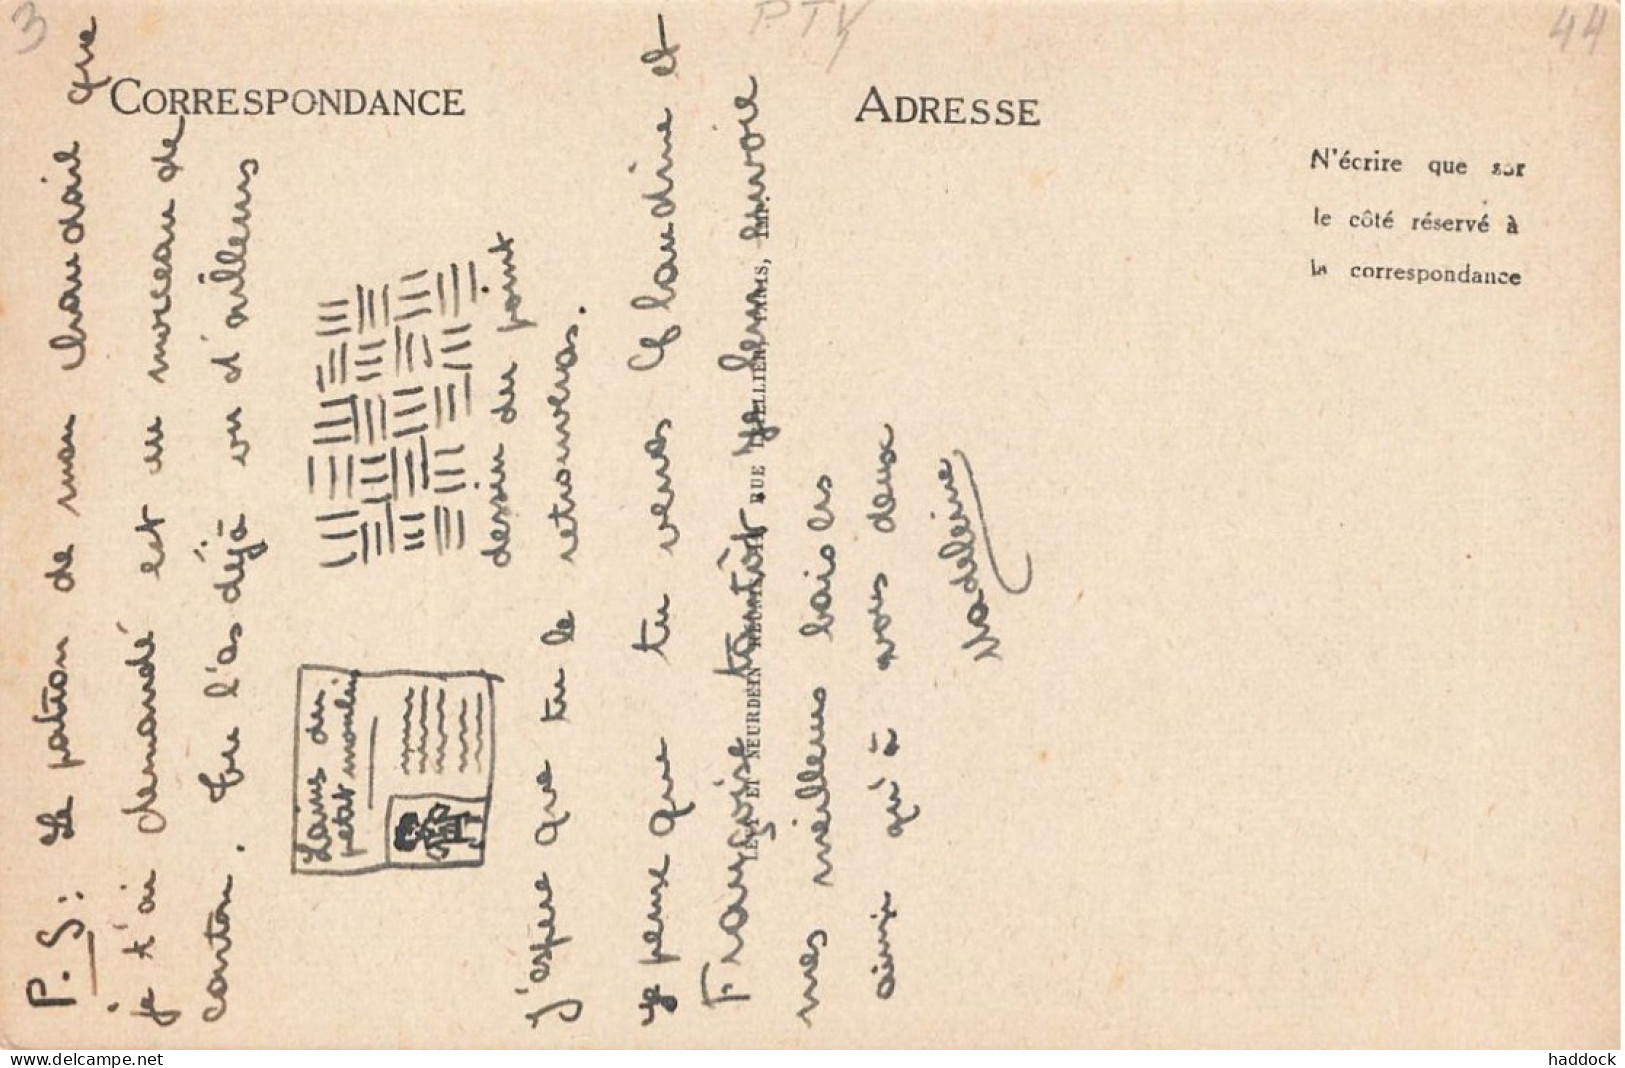 3
PTY
44
CORRESPONDANCE
ADRESSE
N'écrire que sur
le côté réservé à
la correspondance
P.S: Le patron de mon chandail que
je t'ai demandé est un morceau de
carton. Tu l'as déjà vu d'ailleurs
Laines du
petit moulin
dessin du point
J'espère que tu le retrouveras.
Je pense que tu verras Claudine et
Françoise tantôt Je leur envoie
mes meilleurs baisers
ainsi qu'à vous deux
Madeleine
LEVY ET NEURDEIN RÉUNIS, RUE LETELLIER, PARIS, IMP.
www.delcampe.net
haddock